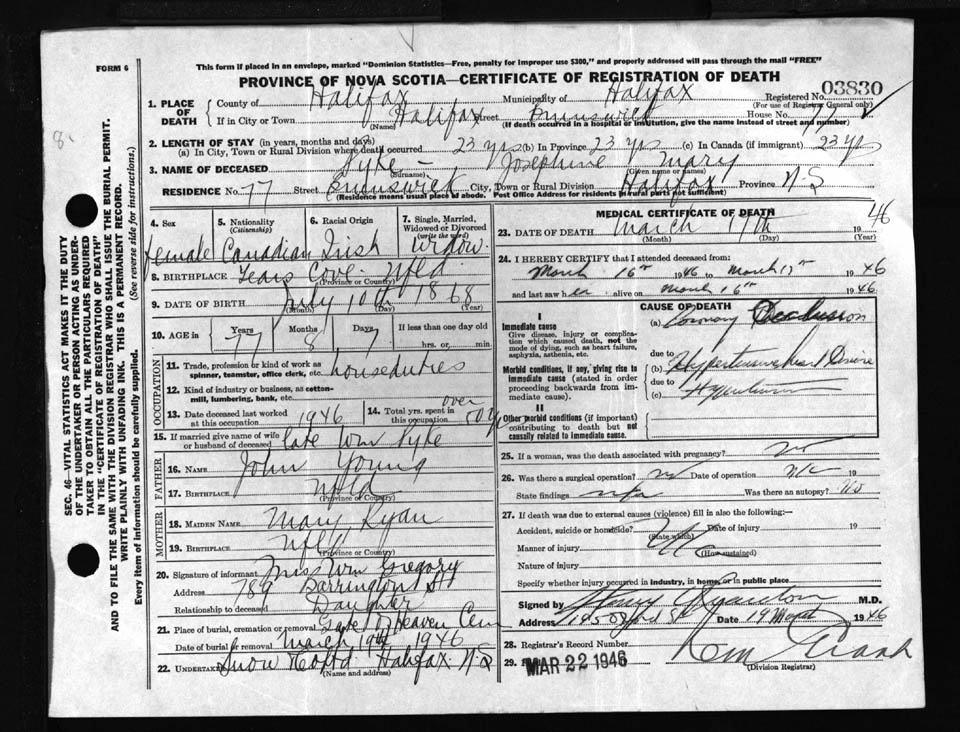 This form if placed in an envelope, marked “Dominion Statistics—Free, penalty for improper use $300,” and properly addressed will pass through the mail “FREE”
FORM 6
PROVINCE OF NOVA SCOTIA—CERTIFICATE OF REGISTRATION OF DEATH
03830
1. PLACE OF DEATH
County of Halifax Municipality of Halifax Registered No.
(For use of Registrar General only)
If in City or Town Halifax Street Brunswick House No. 77
(Name) (If death occurred in a hospital or institution, give the name instead of street and number)
2. LENGTH OF STAY (in years, months and days)
(a) In City, Town or Rural Division where death occurred 23 yrs (b) In Province 23 yrs (c) In Canada (if immigrant) 23 yrs
3. NAME OF DECEASED Pyke - Josephine Mary
(Surname) (Given name or names)
RESIDENCE No. 77 Street Brunswick City, Town or Rural Division Halifax Province N.S
(Residence means usual place of abode. Post Office Address for residents in rural parts not sufficient)
4. Sex female
5. Nationality (Citizenship) Canadian
6. Racial Origin Irish
7. Single, Married, Widowed or Divorced (write the word) widow
8. BIRTHPLACE Cove Nfld.
(Province or Country)
9. DATE OF BIRTH July 10th 1868
(Month) (Date) (Year)
10. AGE in Years 77 Months 8 Days 7 If less than one day old
hrs. or min.
OCCUPATION
11. Trade, profession or kind of work as spinner, teamster, office clerk, etc. houseduties
12. Kind of industry or business, as cotton-mill, lumbering, bank, etc.
13. Date deceased last worked at this occupation 1946
14. Total yrs. spent in this occupation over 50 yrs
15. If married give name of wife or husband of deceased late Wm Pyke
FATHER
16. NAME John Young
17. BIRTHPLACE Nfld
(Province or Country)
MOTHER
18. MAIDEN NAME Mary Ryan
19. BIRTHPLACE Nfld
(Province or Country)
20. Signature of informant Mrs Wm Gregory
Address 789 Barrington St
Relationship to deceased Daughter
21. Place of burial, cremation or removal Gate of Heaven Cem
Date of burial or removal March 19th 1946
22. Undertaker Snow & Co Ltd. Halifax N.S
(Name and address)
MEDICAL CERTIFICATE OF DEATH
23. DATE OF DEATH March 17th 1946
(Month) (Day) (Year)
24. I HEREBY CERTIFY that I attended deceased from:
March 16th 1946 to March 17th 1946
and last saw her alive on March 16th 1946
CAUSE OF DEATH
I
Immediate cause
Give disease, injury or complication which caused death, not the mode of dying, such as heart failure, asphyxia, asthenia, etc.
(a) Coronary Occlusion
Morbid conditions, if any, giving rise to immediate cause (stated in order proceeding backwards from immediate cause).
due to
(b) Hypertensive heart Disease
due to
(c) Hypertension
II
Other morbid conditions (if important) contributing to death but not causally related to immediate cause.
25. If a woman, was the death associated with pregnancy? no
26. Was there a surgical operation? no Date of operation 19
State findings Was there an autopsy? No
27. If death was due to external causes (violence) fill in also the following:—
Accident, suicide or homicide? Date of injury 19
(State which)
Manner of injury
(How sustained)
Nature of injury
Specify whether injury occurred in industry, in home, or in public place
Signed by M.D.
Address Date 19 March 1946
28. Registrar's Record Number
29. MAR 22 1946
(Division Registrar)
SEC. 46—VITAL STATISTICS ACT MAKES IT THE DUTY
OF THE UNDERTAKER OR PERSON ACTING AS UNDER-
TAKER TO OBTAIN ALL THE PARTICULARS REQUIRED
IN THE “CERTIFICATE OF REGISTRATION OF DEATH”
AND TO FILE THE SAME WITH THE DIVISION REGISTRAR WHO SHALL ISSUE THE BURIAL PERMIT.
WRITE PLAINLY WITH UNFADING INK. THIS IS A PERMANENT RECORD.
Every item of information should be carefully supplied. (See reverse side for instructions.)